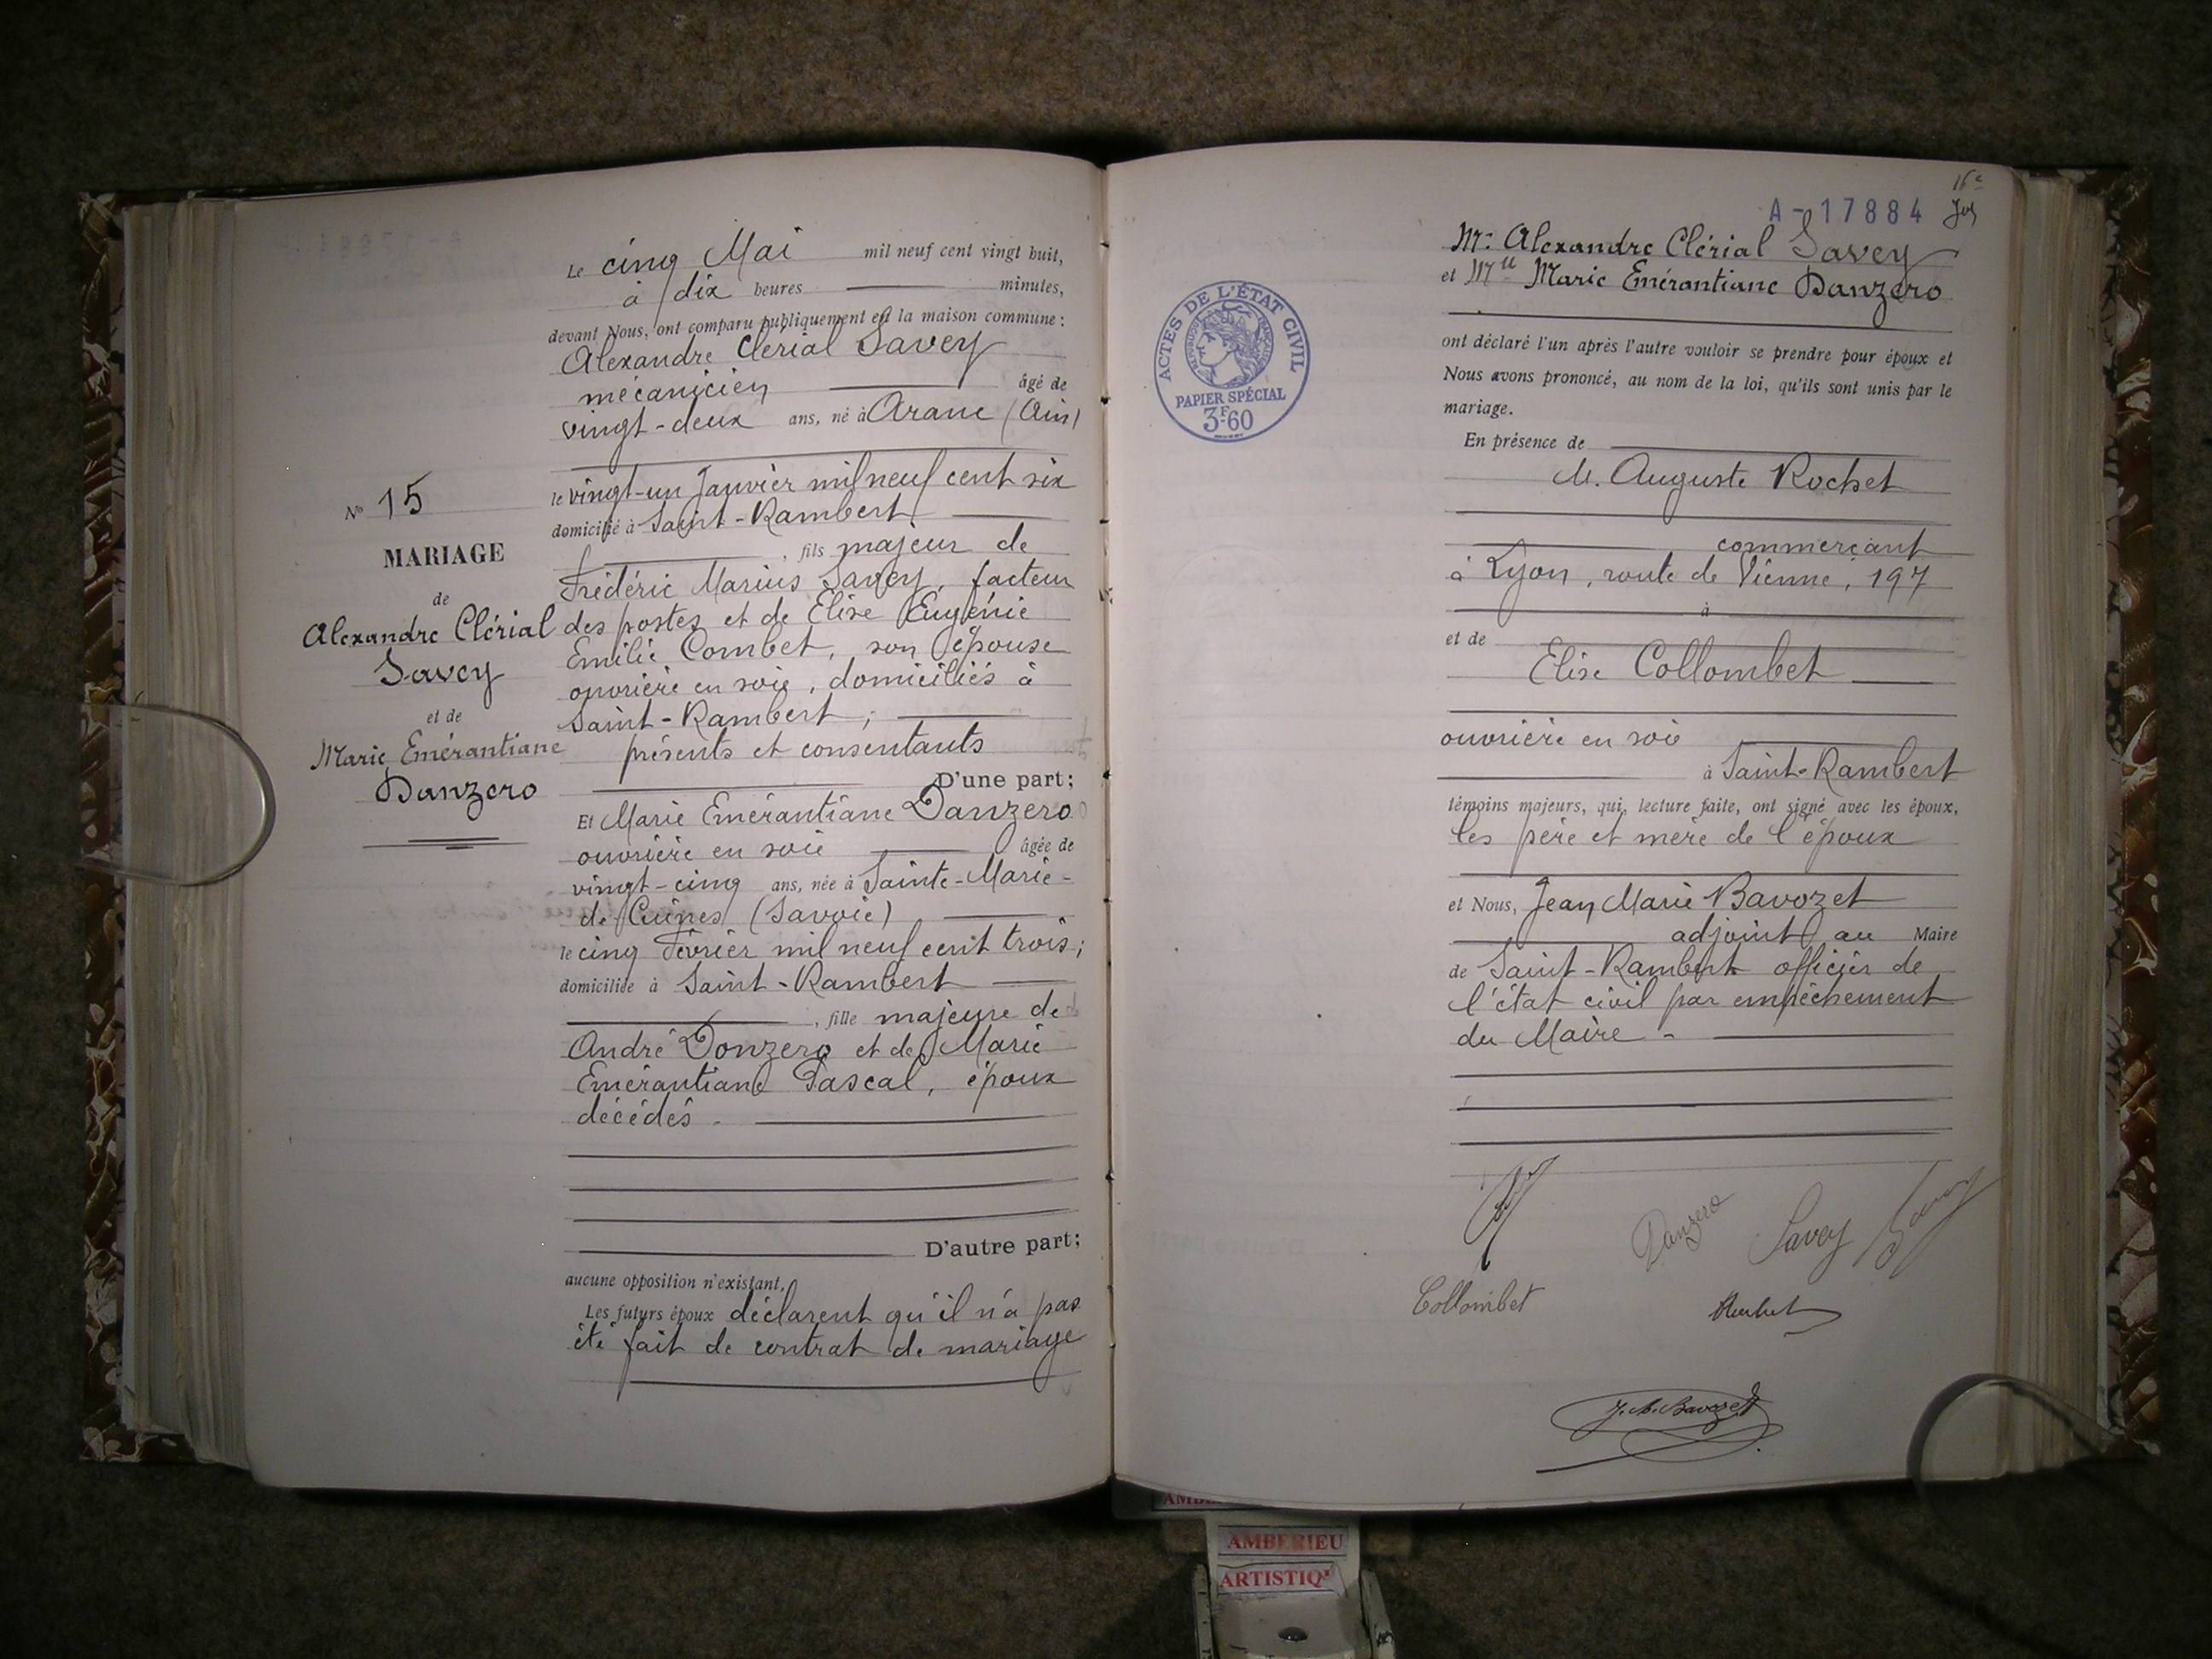 Le cinq Mai mil neuf cent vingt huit,
à dix heures minutes,
devant Nous, ont comparu publiquement en la maison commune :
Alexandre Clérial Savey
mécanicien âgé de
vingt-deux ans, né à Aranc (Ain)
le vingt-un Janvier mil neuf cent six
domicilié à Saint-Rambert
, fils majeur de
Frédéric Marius Savey, facteur
des postes et de Elise Eugénie
Emilie Combet, son épouse
ouvrière en soie, domiciliés à
Saint-Rambert ;
présents et consentants
D'une part ;
Et Marie Emérantiane Danzero
ouvrière en soie âgée de
vingt-cinq ans, née à Sainte-Marie-
de-Cuines (Savoie)
le cinq Février mil neuf cent trois ;
domiciliée à Saint-Rambert
, fille majeure de
André Donzero et de Marie
Emérantiane Pascal, époux
décédés.
D'autre part ;
aucune opposition n'existant.
Les futurs époux déclarent qu'il n'a pas
été fait de contrat de mariage
N° 15
MARIAGE
de
Alexandre Clérial
Savey
et de
Marie Emérantiane
Danzero
A-17884
16e
ACTES DE L'ÉTAT CIVIL
RÉPUBLIQUE FRANÇAISE
PAPIER SPÉCIAL
3F.60
Mr. Alexandre Clérial Savey
et Mlle Marie Emérantiane Danzero
ont déclaré l'un après l'autre vouloir se prendre pour époux et
Nous avons prononcé, au nom de la loi, qu'ils sont unis par le
mariage.
En présence de
M. Auguste Rochet
commerçant
à Lyon, route de Vienne, 197
à
et de
Elise Collombet
ouvrière en soie
à Saint-Rambert
témoins majeurs, qui, lecture faite, ont signé avec les époux,
les père et mère de l'époux
et Nous, Jean Marie Bavozet
adjoint au Maire
de Saint-Rambert officier de
l'état civil par empêchement
du Maire -
Danzero Savey Savey
Collombet Rochet
J. M. Bavozet
AMBERIEU
ARTISTIQ